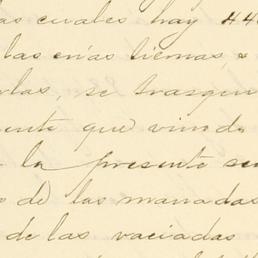 las cuales hay 44
las crías tiernas, e
rlas, se trasqui
ente que vinde
la presente se
de las manadas
de las vaciadas